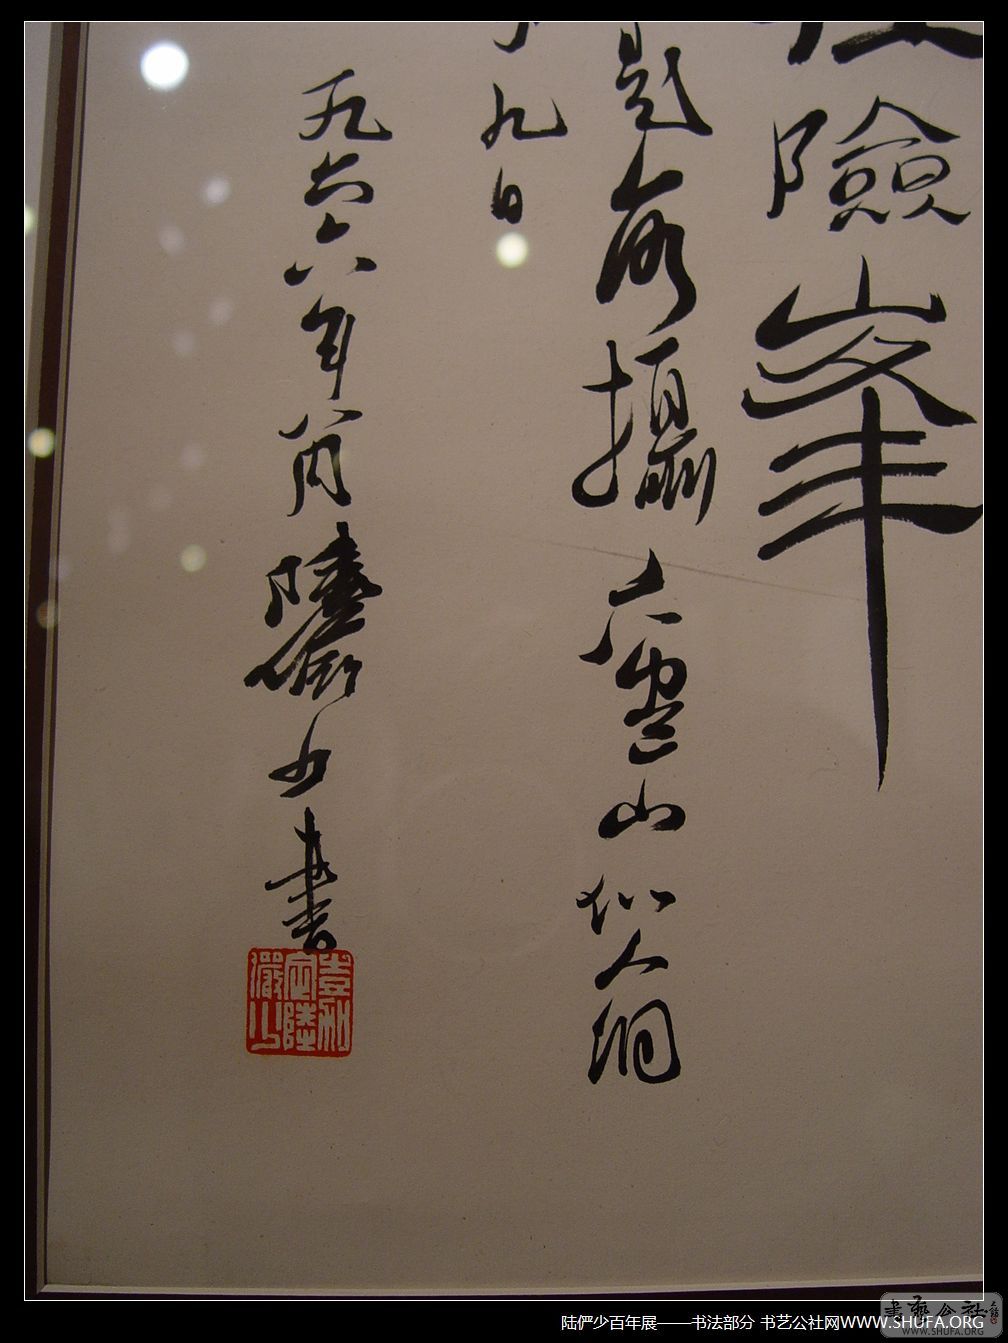 險峯
題所攝廬山仙人洞
九日
九六六年八月陸儼少書
定陸儼少
陆俨少百年展——书法部分 书艺公社网WWW.SHUFA.ORG
書藝公社
WWW.SHUFA.ORG